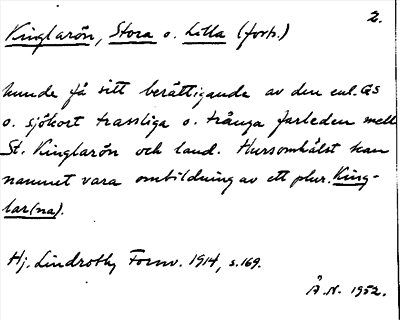 2.
Kinglarön, Stora o. Lilla (forts.)
kunde få sitt berättigande av den enl. GS
o. sjökort trassliga o. trånga farleden mell
St. Kinglarön och land. Hursomhälst kan
namnet vara ombildning av ett plur. King-
lar(na).
Hj. Lindroth, Fornv. 1914, s. 169.
Å. N. 1952.